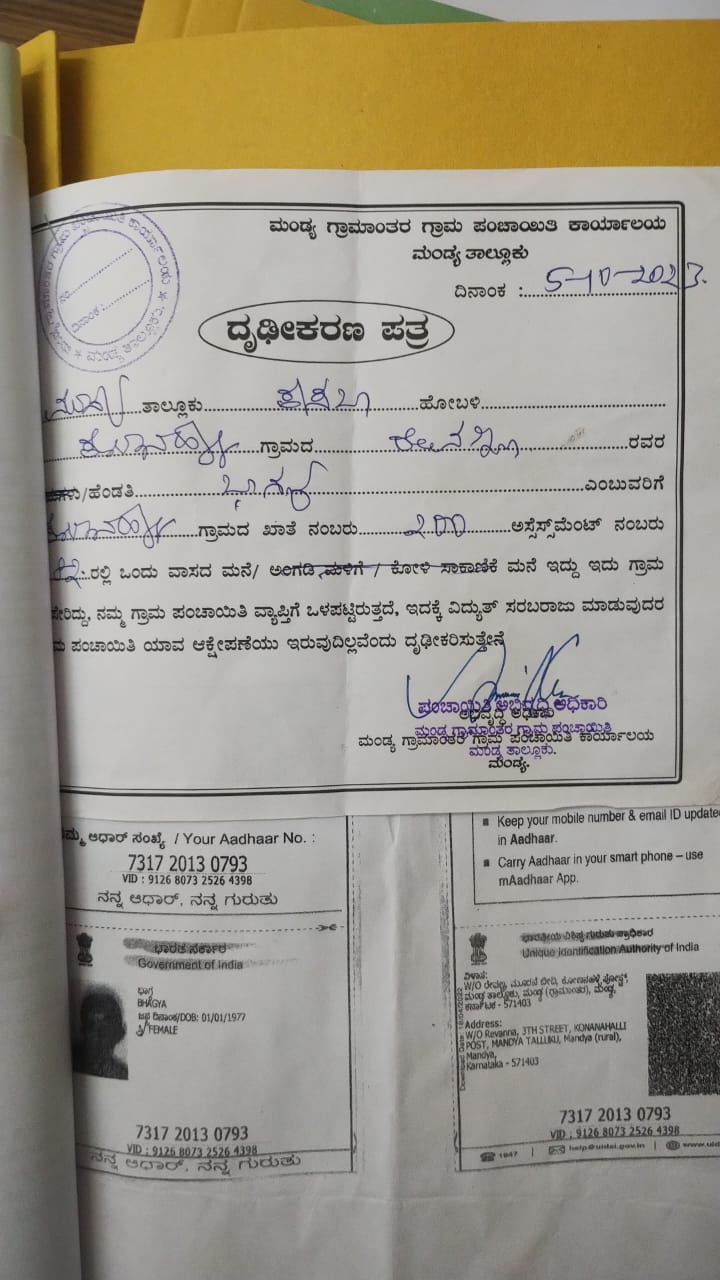 ಮಂಡ್ಯ ಗ್ರಾಮಾಂತರ ಗ್ರಾಮ ಪಂಚಾಯಿತಿ ಕಾರ್ಯಾಲಯ
ಮಂಡ್ಯ ತಾಲ್ಲೂಕು
ದಿನಾಂಕ : 5-10-2023.
ನಂ
ದಿನಾಂಕ :
ದೃಢೀಕರಣ ಪತ್ರ
ಮಂಡ್ಯ ತಾಲ್ಲೂಕು ಕಸಬಾ ಹೋಬಳಿ
ಕೋಣನಹಳ್ಳಿ ಗ್ರಾಮದ ರೇವಣ್ಣ ರವರ
ಮಗಳು/ಹೆಂಡತಿ ಭಾಗ್ಯ ಎಂಬುವರಿಗೆ
ಕೋಣನಹಳ್ಳಿ ಗ್ರಾಮದ ಖಾತೆ ನಂಬರು 200 ಅಸ್ಸೆಸ್ಸ್‌ಮೆಂಟ್ ನಂಬರು
ರಲ್ಲಿ ಒಂದು ವಾಸದ ಮನೆ/ ಅಂಗಡಿ ಮಳಿಗೆ / ಕೋಳಿ ಸಾಕಾಣಿಕೆ ಮನೆ ಇದ್ದು ಇದು ಗ್ರಾಮ
ಸೇರಿದ್ದು, ನಮ್ಮ ಗ್ರಾಮ ಪಂಚಾಯಿತಿ ವ್ಯಾಪ್ತಿಗೆ ಒಳಪಟ್ಟಿರುತ್ತದೆ, ಇದಕ್ಕೆ ವಿದ್ಯುತ್ ಸರಬರಾಜು ಮಾಡುವುದರ
ಪಂಚಾಯಿತಿ ಯಾವ ಆಕ್ಷೇಪಣೆಯು ಇರುವುದಿಲ್ಲವೆಂದು ದೃಢೀಕರಿಸುತ್ತೇನೆ
ಪಂಚಾಯಿತಿ ಅಭಿವೃದ್ಧಿ ಅಧಿಕಾರಿ
ಮಂಡ್ಯ ಗ್ರಾಮಾಂತರ ಗ್ರಾಮ ಪಂಚಾಯಿತಿ
ಮಂಡ್ಯ ಗ್ರಾಮಾಂತರ ಗ್ರಾಮ ಪಂಚಾಯಿತಿ ಕಾರ್ಯಾಲಯ
ಮಂಡ್ಯ ತಾಲ್ಲೂಕು.
ಮಂಡ್ಯ.
ಆಧಾರ್ ಸಂಖ್ಯೆ / Your Aadhaar No. :
7317 2013 0793
VID : 9126 8073 2526 4398
ನನ್ನ ಆಧಾರ್, ನನ್ನ ಗುರುತು
ಭಾರತ ಸರ್ಕಾರ
Government of India
ಭಾಗ್ಯ
BHAGYA
ಜನ್ಮ ದಿನಾಂಕ/DOB: 01/01/1977
FEMALE
7317 2013 0793
VID : 9126 8073 2526 4398
ನನ್ನ ಆಧಾರ್, ನನ್ನ ಗುರುತು
■ Keep your mobile number & email ID updated
in Aadhaar.
■ Carry Aadhaar in your smart phone – use
mAadhaar App.
ಭಾರತೀಯ ವಿಶಿಷ್ಟ ಗುರುತು ಪ್ರಾಧಿಕಾರ
Unique Identification Authority of India
ವಿಳಾಸ:
W/O ರೇವಣ್ಣ, ಮೂರನೆ ಬೀದಿ, ಕೋಣನಹಳ್ಳಿ ಪೋಸ್ಟ್,
ಮಂಡ್ಯ ತಾಲ್ಲೂಕು, ಮಂಡ್ಯ (ಗ್ರಾಮಾಂತರ), ಮಂಡ್ಯ,
ಕರ್ನಾಟಕ - 571403
Address:
W/O Revanna, 3TH STREET, KONANAHALLI
POST, MANDYA TALLUKU, Mandya (rural),
Mandya,
Karnataka - 571403
7317 2013 0793
VID : 9126 8073 2526 4398
1947 | help@uidai.gov.in |